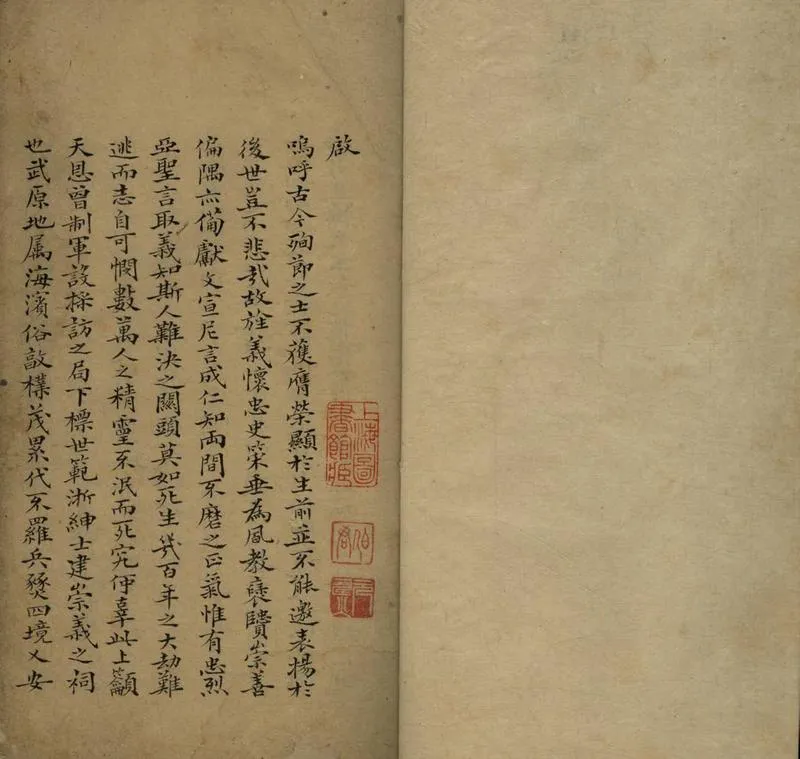 啟
嗚呼古今殉節之士不獲膺榮顯於生前並不能邀表揚於
後世豈不悲哉故旌義懷忠史榮垂為風教褒賷崇善
偏隅亦備獻文宣尼言成仁知兩間不磨之正氣惟有忠烈
亞聖言取義知斯人難決之關頭莫如死生幾百年之大劫難
逃而志自可憫數萬人之精靈不泯而死究何辜此上籲
天恩曾制軍設採訪之局下標世範浙紳士建崇義之祠
也武原地属海濱俗敦樸茂累代不罹兵燹四境乂安
上海圖書館藏